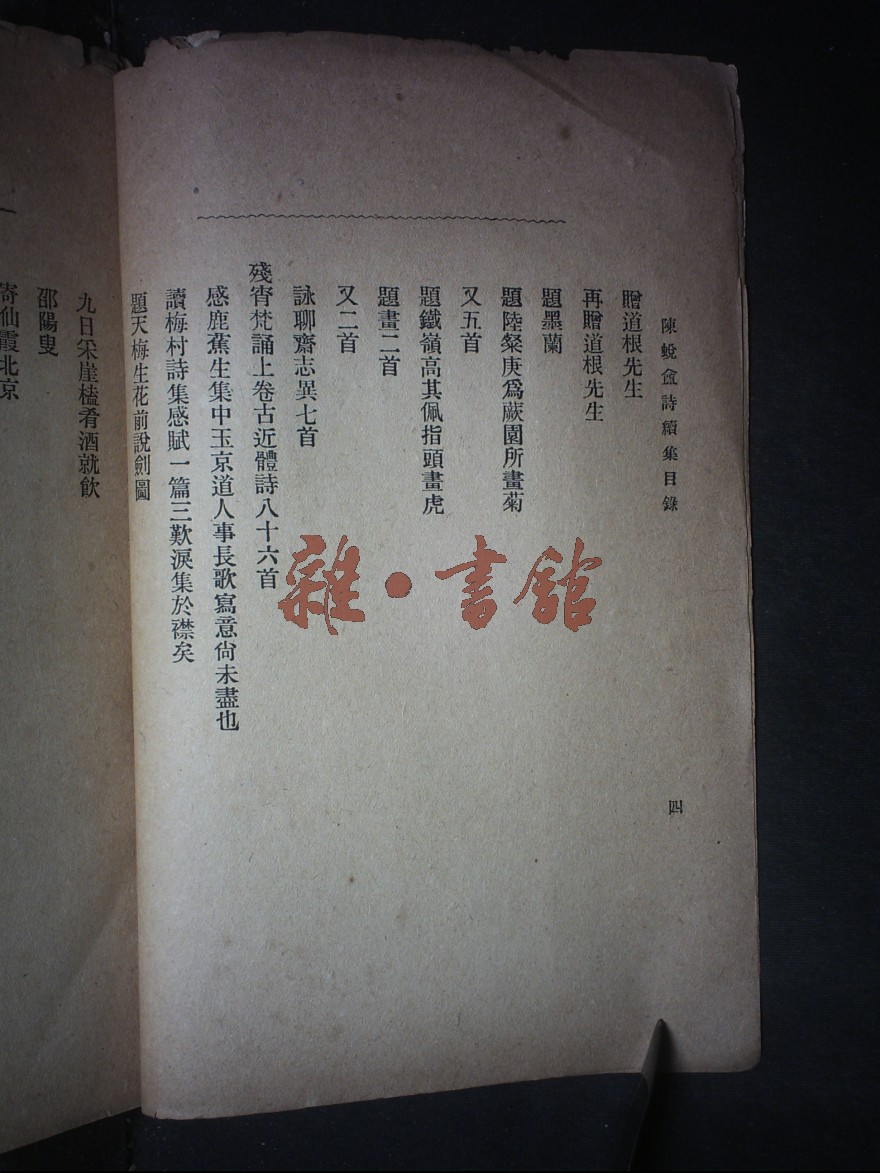 陳蛻盦詩續集目錄
四
贈道根先生
再贈道根先生
題墨蘭
題陸粲庚爲蕨園所畫菊
又五首
題鐵嶺高其佩指頭畫虎
題畫二首
又二首
詠聊齋志異七首
殘宵梵誦上卷古近體詩八十六首
感鹿蕉生集中玉京道人事長歌寫意尙未盡也
讀梅村詩集感賦一篇三歎淚集於襟矣
題天梅生花前說劍圖
九日宋崖榼肴酒就飮
邵陽叟
寄仙霞北京
一
雜·書館